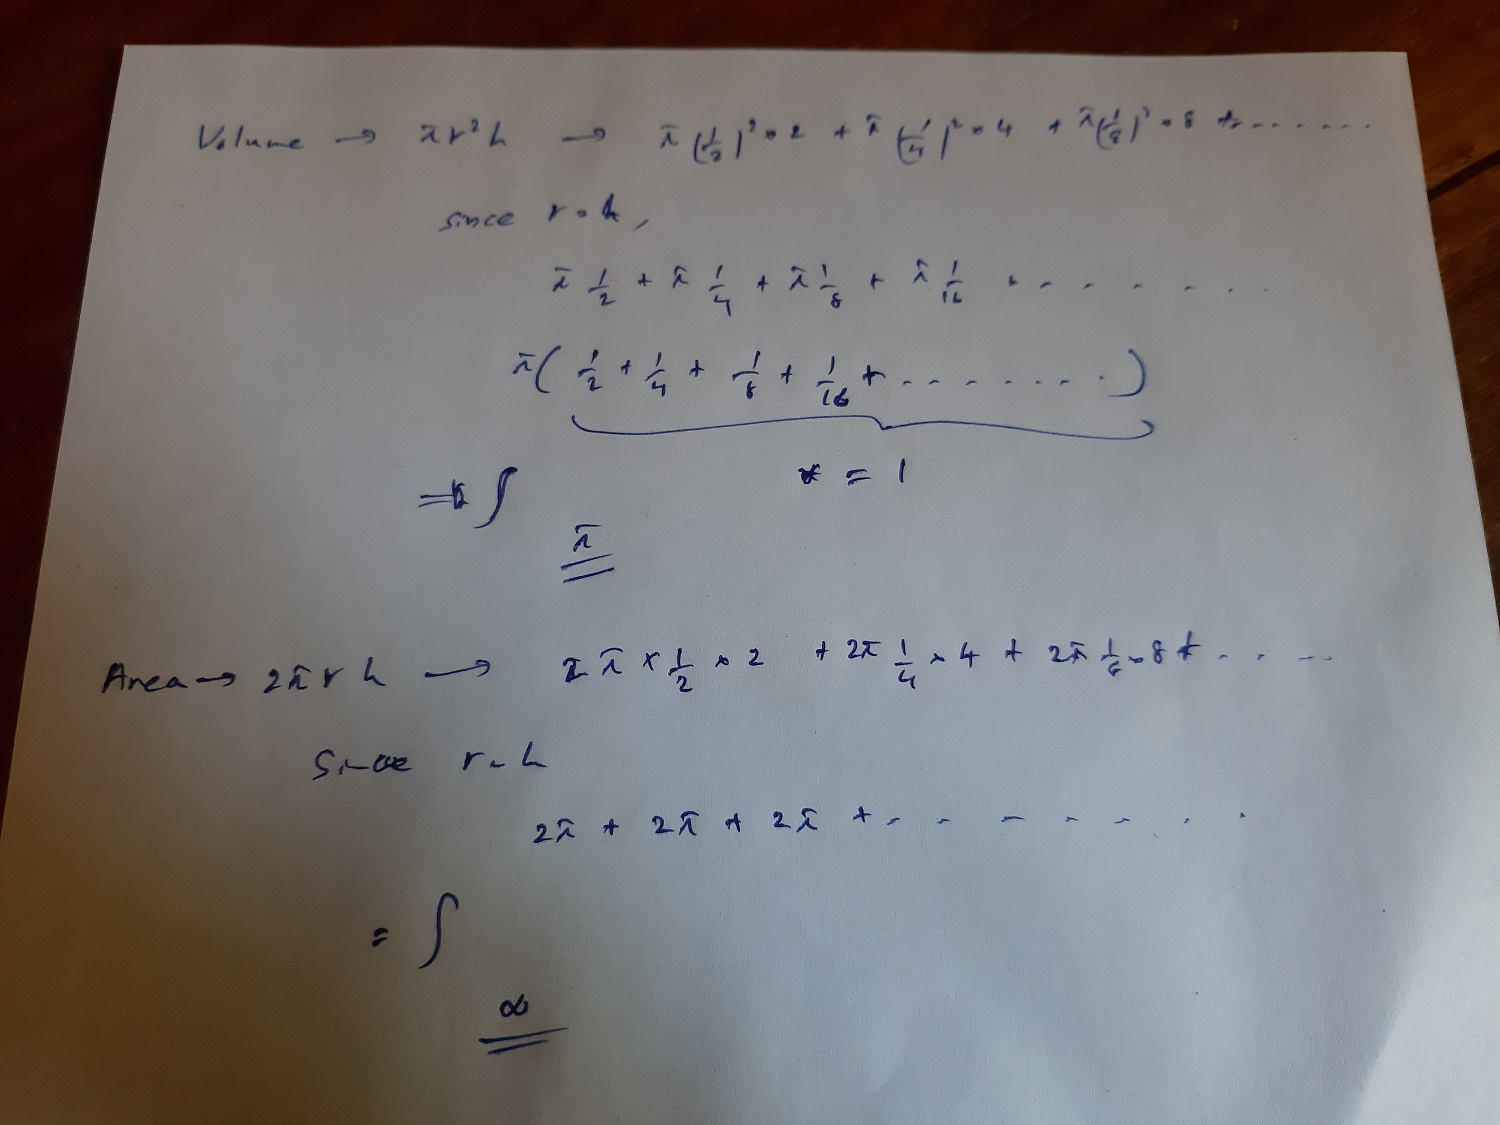 Volume → πr²h → π(1/2)² × 2 + π(1/4)² × 4 + π(1/8)² × 8 + ......
since r = h,
π 1/2 + π 1/4 + π 1/8 + π 1/16 + - - - - - -
π( 1/2 + 1/4 + 1/8 + 1/16 + - - - - - - - )
= 1
⇒ ∫
π
Area → 2πrh → 2π × 1/2 × 2 + 2π 1/4 × 4 + 2π 1/8 × 8 + - - - -
Since r = h
2π + 2π + 2π + - - - - - - -
= ∫
∞